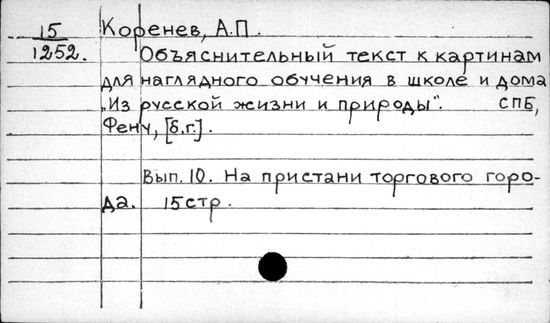 15 Коренев, А.П.
1252. Объяснительный текст к картинам
для наглядного обучения в школе и дома
„Из русской жизни и природы". СПБ,
Фену, [б.г.].
Вып. 10. На пристани торгового горо-
да. 15 стр.